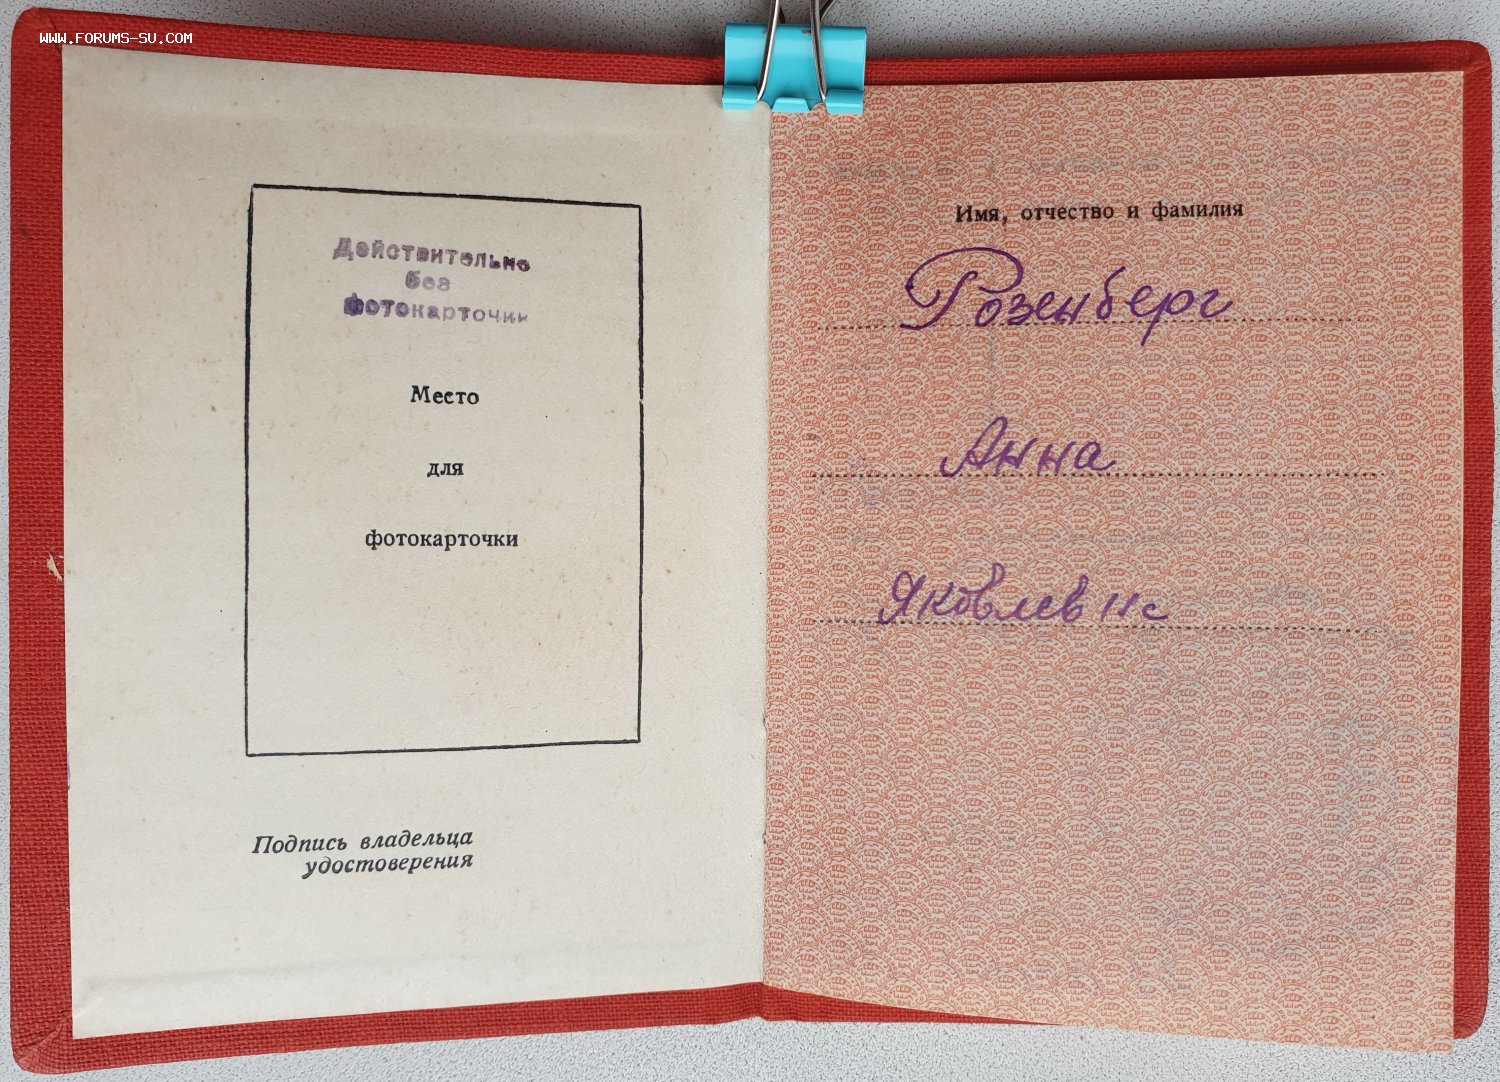 WWW.FORUMS-SU.COM
Действительно
без
фотокарточки
Место
для
фотокарточки
Подпись владельца
удостоверения
Имя, отчество и фамилия
Розенберг
Анна
Яковлевна